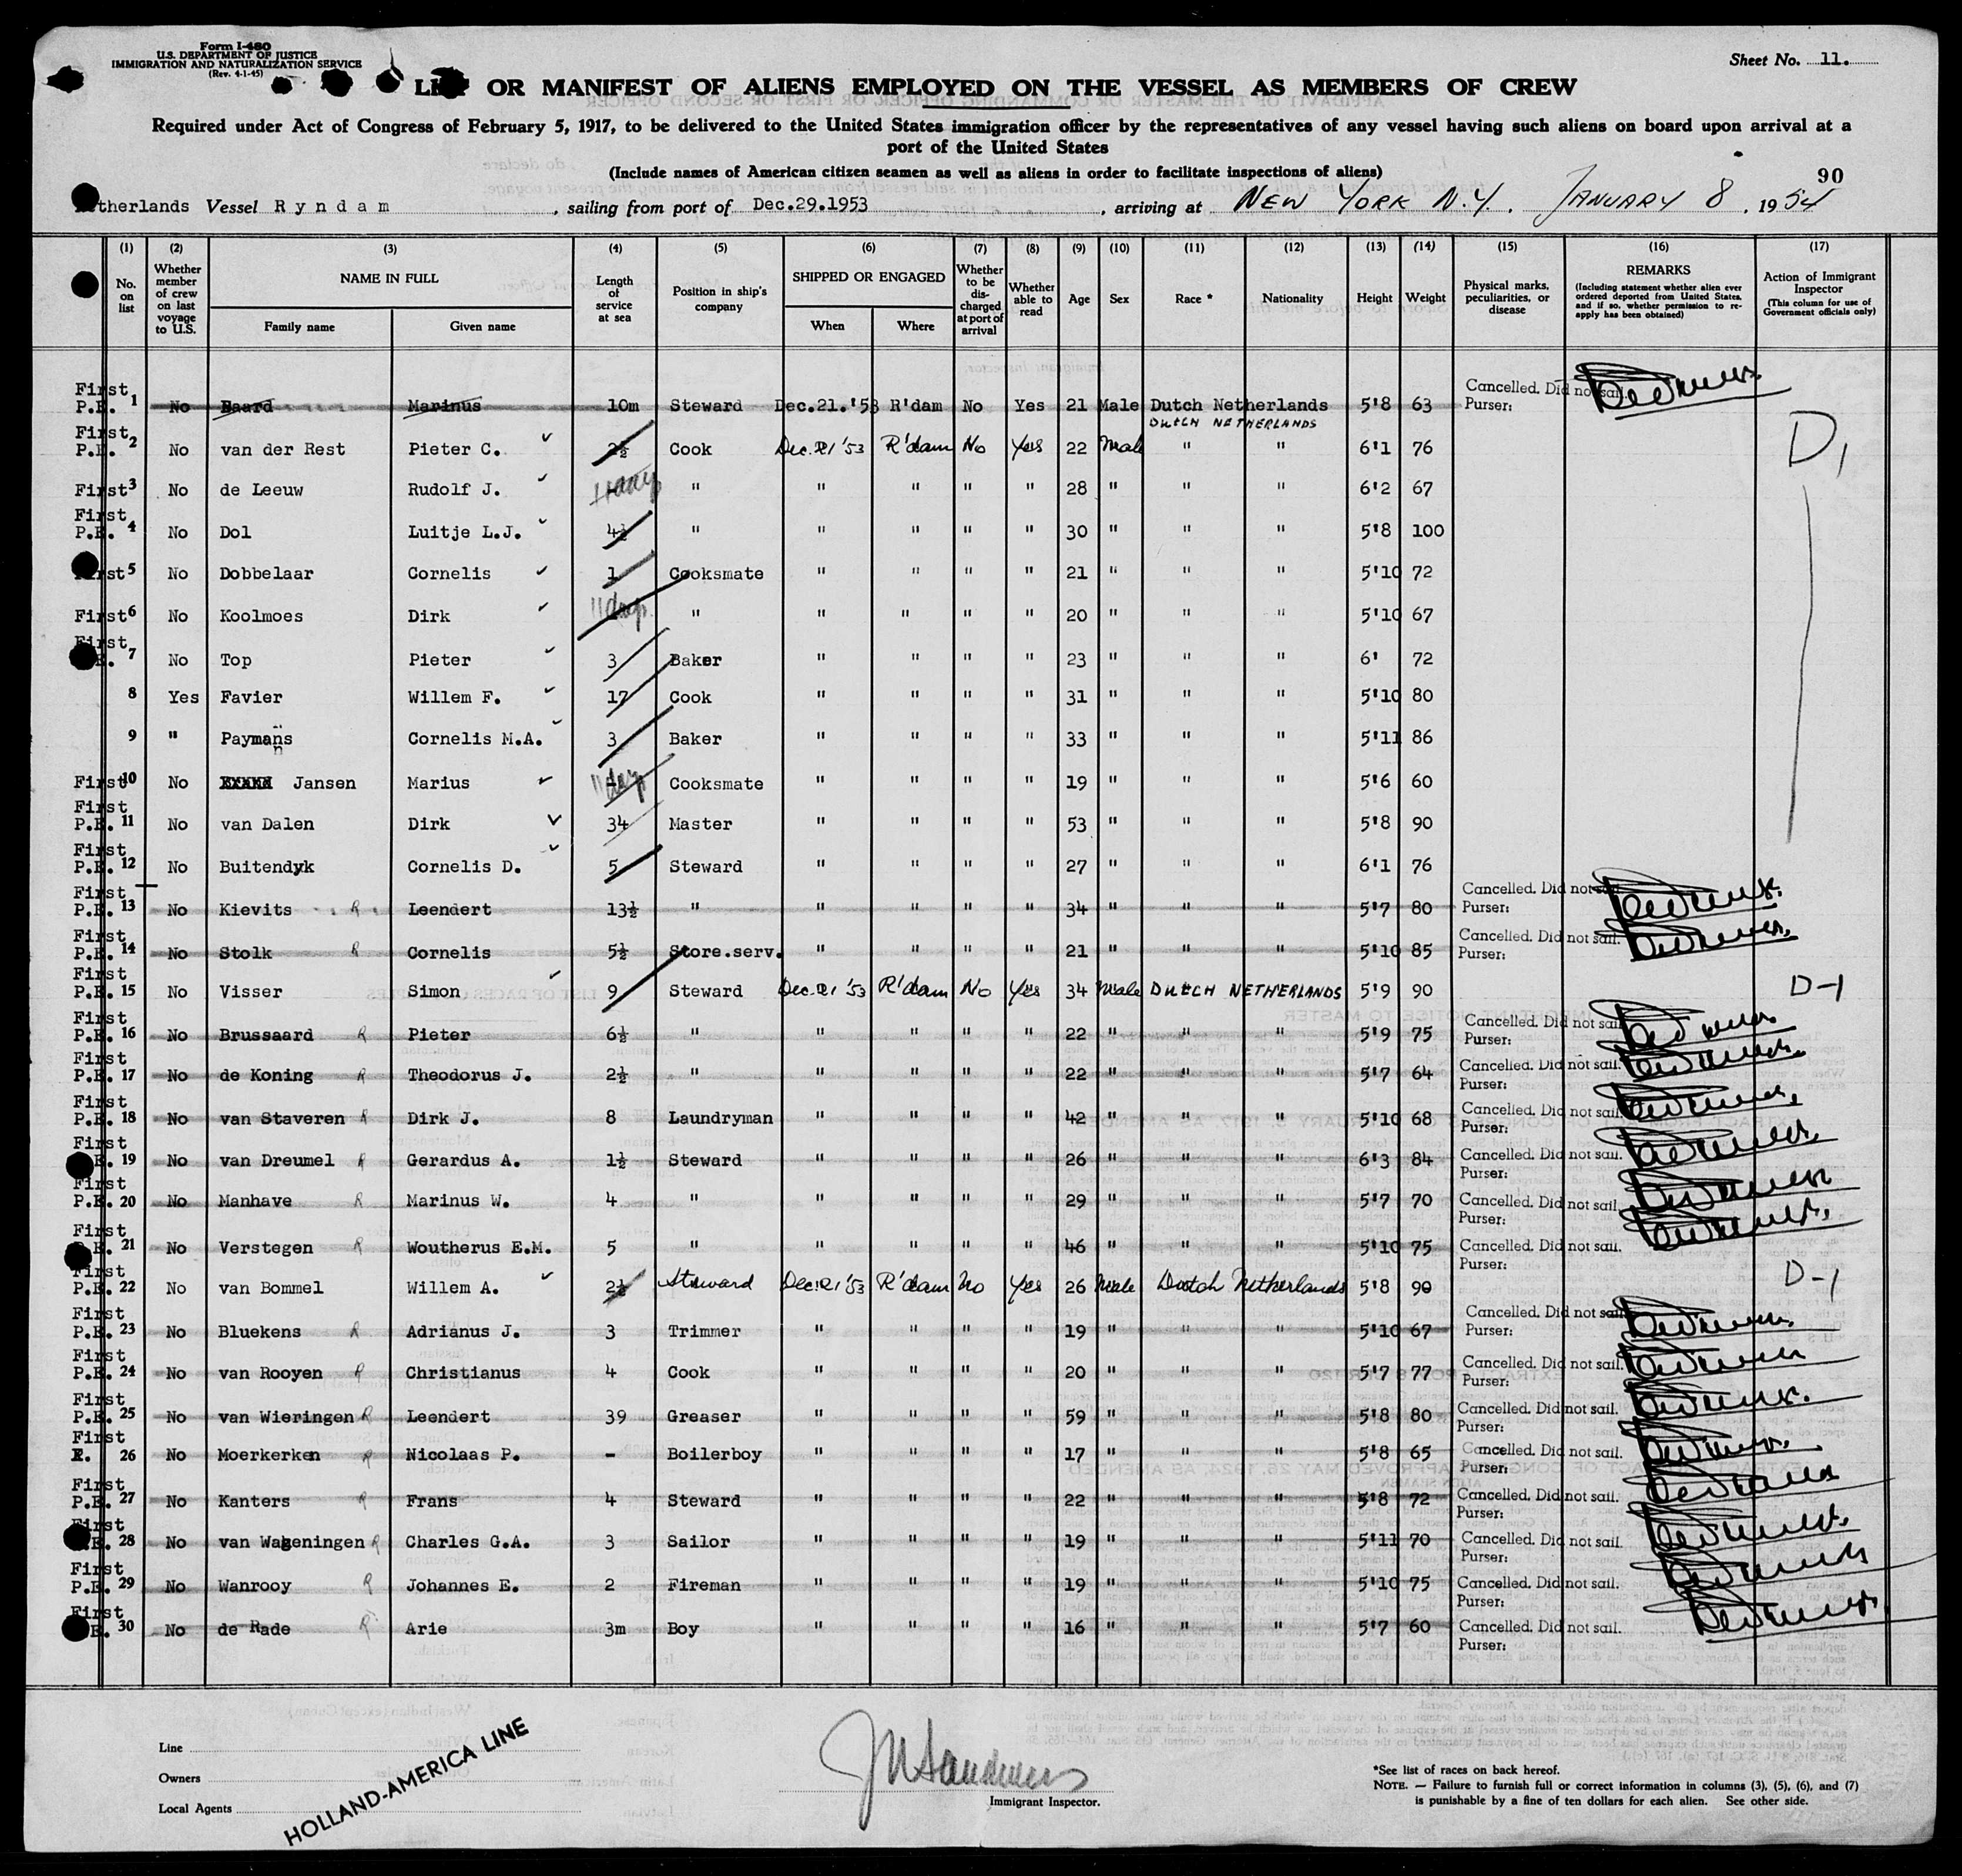 Form I-480
U.S. DEPARTMENT OF JUSTICE
IMMIGRATION AND NATURALIZATION SERVICE
(Rev. 4-1-45)
Sheet No. 11.
OR MANIFEST OF ALIENS EMPLOYED ON THE VESSEL AS MEMBERS OF CREW
Required under Act of Congress of February 5, 1917, to be delivered to the United States immigration officer by the representatives of any vessel having such aliens on board upon arrival at a
port of the United States
(Include names of American citizen seamen as well as aliens in order to facilitate inspections of aliens)
90
therlands Vessel Ryndam, sailing from port of Dec.29.1953, arriving at NEW YORK N.Y. JANUARY 8, 1954
(1) (2) (3) (4) (5) (6) (7) (8) (9) (10) (11) (12) (13) (14) (15) (16) (17)
No. on list
Whether member of crew on last voyage to U.S.
NAME IN FULL
Family name
Given name
Length of service at sea
Position in ship's company
SHIPPED OR ENGAGED
When
Where
Whether to be discharged at port of arrival
Whether able to read
Age
Sex
Race *
Nationality
Height
Weight
Physical marks, peculiarities, or disease
REMARKS
(Including statement whether alien ever ordered deported from United States, and if so, whether permission to re-apply has been obtained)
Action of Immigrant Inspector
(This column for use of Government officials only)
First P.E. 1 No Baard Marinus 10m Steward Dec.21.'53 R'dam No Yes 21 Male Dutch Netherlands 5'8 63 Cancelled. Did not sail. Purser:
DUTCH NETHERLANDS
First P.E. 2 No van der Rest Pieter C. 2½ Cook Dec. 21 '53 R'dam No Yes 22 Male " " 6'1 76 D1
First 3 No de Leeuw Rudolf J. 11 days " " " " " 28 " " " 6'2 67
First P.E. 4 No Dol Luitje L.J. 4½ " " " " " 30 " " " 5'8 100
First 5 No Dobbelaar Cornelis 1 Cooksmate " " " " 21 " " " 5'10 72
First 6 No Koolmoes Dirk 11 days " " " " " 20 " " " 5'10 67
First E. 7 No Top Pieter 3 Baker " " " " 23 " " " 6' 72
8 Yes Favier Willem F. 17 Cook " " " " 31 " " " 5'10 80
9 " Paymans Cornelis M.A. 3 Baker " " " " 33 " " " 5'11 86
First 10 No Jansen Marius 11 days Cooksmate " " " " 19 " " " 5'6 60
First P.E. 11 No van Dalen Dirk 34 Master " " " " 53 " " " 5'8 90
First P.E. 12 No Buitendyk Cornelis D. 5 Steward " " " " 27 " " " 6'1 76
First P.E. 13 No Kievits R Leendert 13½ " " " " " 34 " " " 5'7 80 Cancelled. Did not sail. Purser:
First P.E. 14 No Stolk R Cornelis 5½ Store.serv. " " " " 21 " " " 5'10 85 Cancelled. Did not sail. Purser:
First P.E. 15 No Visser Simon 9 Steward Dec 21 '53 R'dam No Yes 34 Male DUTCH NETHERLANDS 5'9 90 D-1
First P.E. 16 No Brussaard R Pieter 6½ " " " " " 22 " " " 5'9 75 Cancelled. Did not sail. Purser:
First P.E. 17 No de Koning R Theodorus J. 2½ " " " " " 22 " " " 5'7 64 Cancelled. Did not sail. Purser:
First P.E. 18 No van Staveren R Dirk J. 8 Laundryman " " " " 42 " " " 5'10 68 Cancelled. Did not sail. Purser:
First E. 19 No van Dreumel R Gerardus A. 1½ Steward " " " " 26 " " " 6'3 84 Cancelled. Did not sail. Purser:
First P.E. 20 No Manhave R Marinus W. 4 " " " " " 29 " " " 5'7 70 Cancelled. Did not sail. Purser:
First E. 21 No Verstegen R Woutherus E.M. 5 " " " " " 46 " " " 5'10 75 Cancelled. Did not sail. Purser:
First P.E. 22 No van Bommel Willem A. 2½ Steward Dec. 21 '53 R'dam No Yes 26 Male Dutch Netherlands 5'8 90 D-1
First P.E. 23 No Bluekens R Adrianus J. 3 Trimmer " " " " 19 " " " 5'10 67 Cancelled. Did not sail. Purser:
First P.E. 24 No van Rooyen R Christianus 4 Cook " " " " 20 " " " 5'7 77 Cancelled. Did not sail. Purser:
First P.E. 25 No van Wieringen R Leendert 39 Greaser " " " " 59 " " " 5'8 80 Cancelled. Did not sail. Purser:
First E. 26 No Moerkerken R Nicolaas P. - Boilerboy " " " " 17 " " " 5'8 65 Cancelled. Did not sail. Purser:
First P.E. 27 No Kanters R Frans 4 Steward " " " " 22 " " " 5'8 72 Cancelled. Did not sail. Purser:
First E. 28 No van Wageningen R Charles G.A. 3 Sailor " " " " 19 " " " 5'11 70 Cancelled. Did not sail. Purser:
First P.E. 29 No Wanrooy R Johannes E. 2 Fireman " " " " 19 " " " 5'10 75 Cancelled. Did not sail. Purser:
First E. 30 No de Rade R Arie 3m Boy " " " " 16 " " " 5'7 60 Cancelled. Did not sail. Purser:
Line
Owners
Local Agents
HOLLAND-AMERICA LINE
Immigrant Inspector.
*See list of races on back hereof.
NOTE. — Failure to furnish full or correct information in columns (3), (5), (6), and (7)
is punishable by a fine of ten dollars for each alien. See other side.